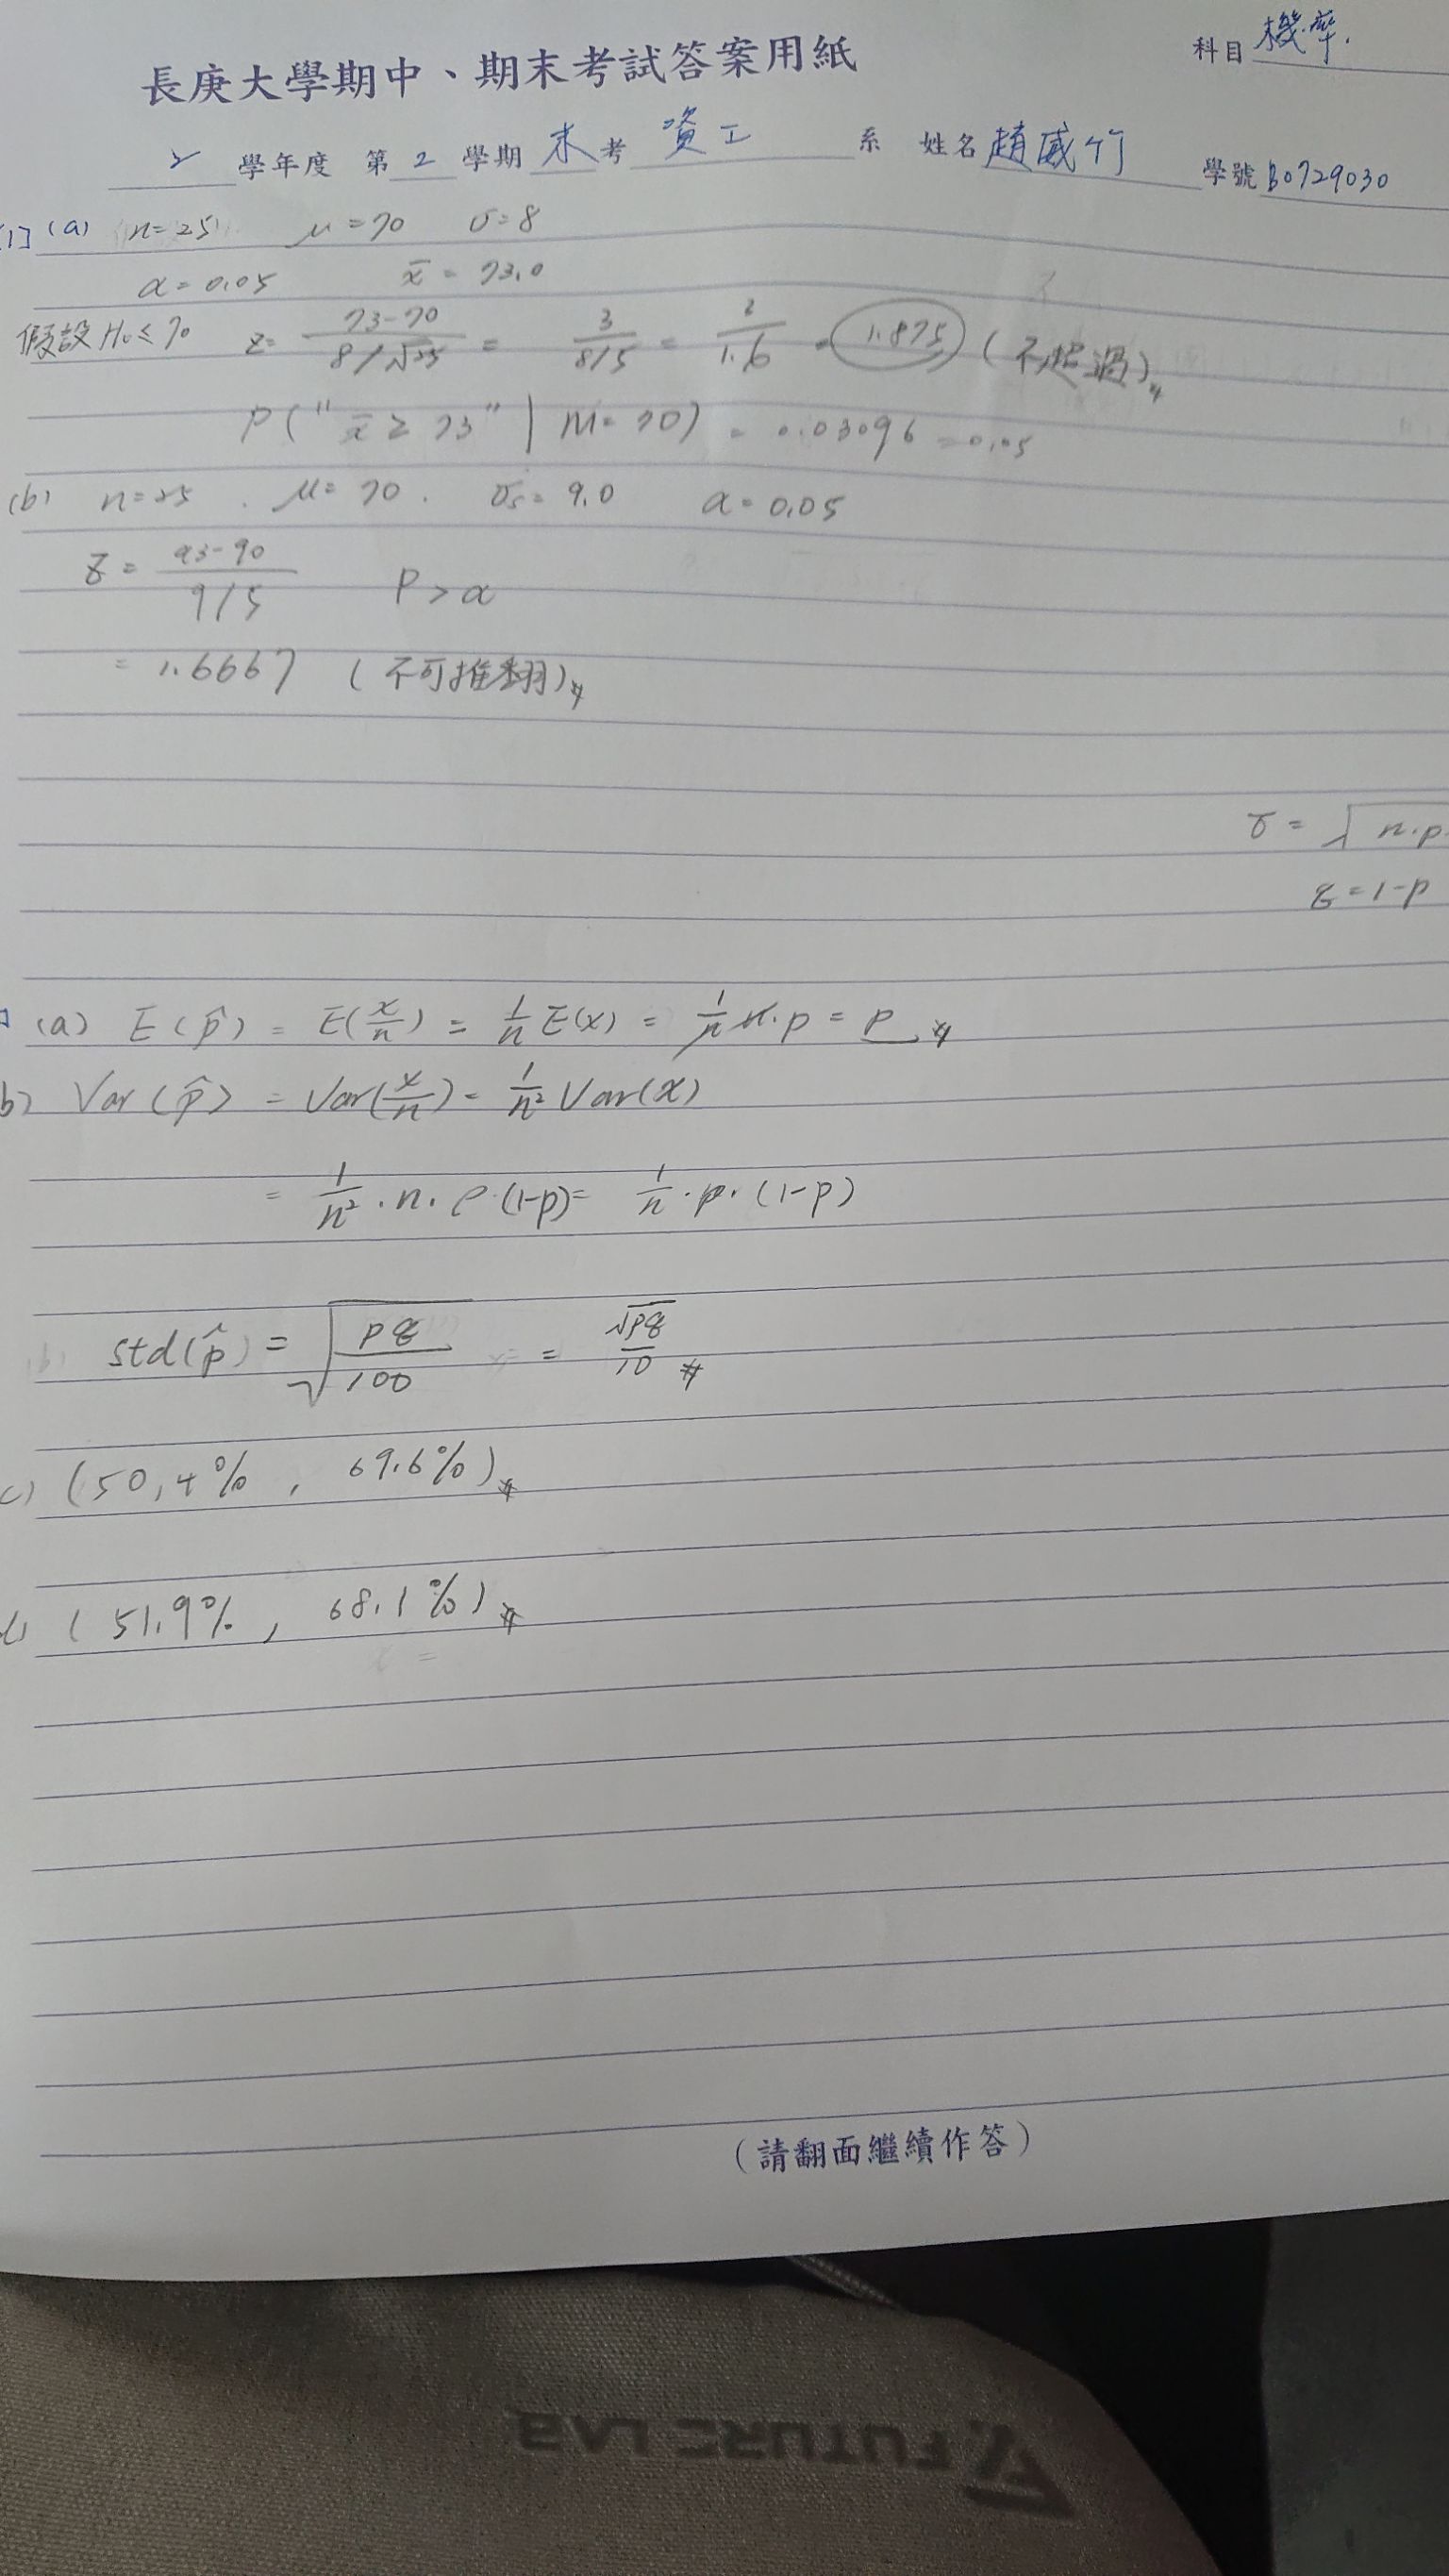 科目 機率.
長庚大學期中、期末考試答案用紙
2 學年度 第 2 學期 末 考 資工 系 姓名 趙威竹 學號 B0729030
[1] (a) n=25 μ=70 σ=8
α=0.05 x̄ = 73.0
假設 H₀≤70 z= 73-70 / 8/√25 = 3 / 8/5 = 3 / 1.6 = 1.875 (不超過)#
P("x̄ ≥ 73" | M=70) = 0.03096 = 0.05
(b) n=25 . μ= 70 . σs= 9.0 α=0.05
z = 93-90 / 9/5 P>α
= 1.6667 (不可推翻)#
σ = √n.p.
q = 1-p
(a) E(p̂) = E(x/n) = 1/n E(x) = 1/n n.p = p #
b) Var(p̂) = Var(x/n) = 1/n² Var(x)
= 1/n² . n. p.(1-p) = 1/n . p. (1-p)
(b) std(p̂) = √pq/100 = √pq/10 #
c) (50.4% , 69.6%)#
d) (51.9% , 68.1%)#
(請翻面繼續作答)
FUTURE LAB